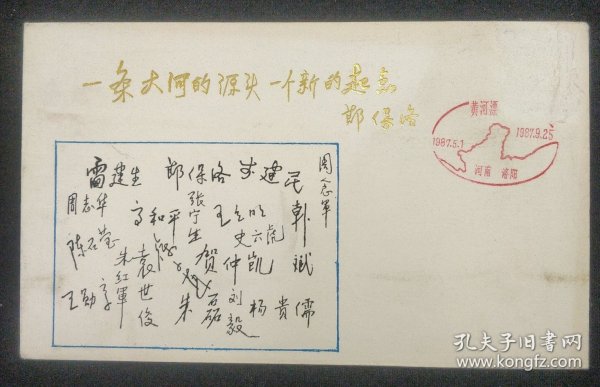 一条大河的源头一个新的起点
郎保洛
黄河漂
1987.5.1
1987.9.25
河南 洛阳
雷建生
郎保洛
李建民
周念军
周志华
高和平
张宁生
韩斌
陈石莹
史六虎
朱红军
袁世俊
贺仲凯
王勋
朱磊
刘毅
杨贵儒
孔夫子旧书网
www.kongfz.com